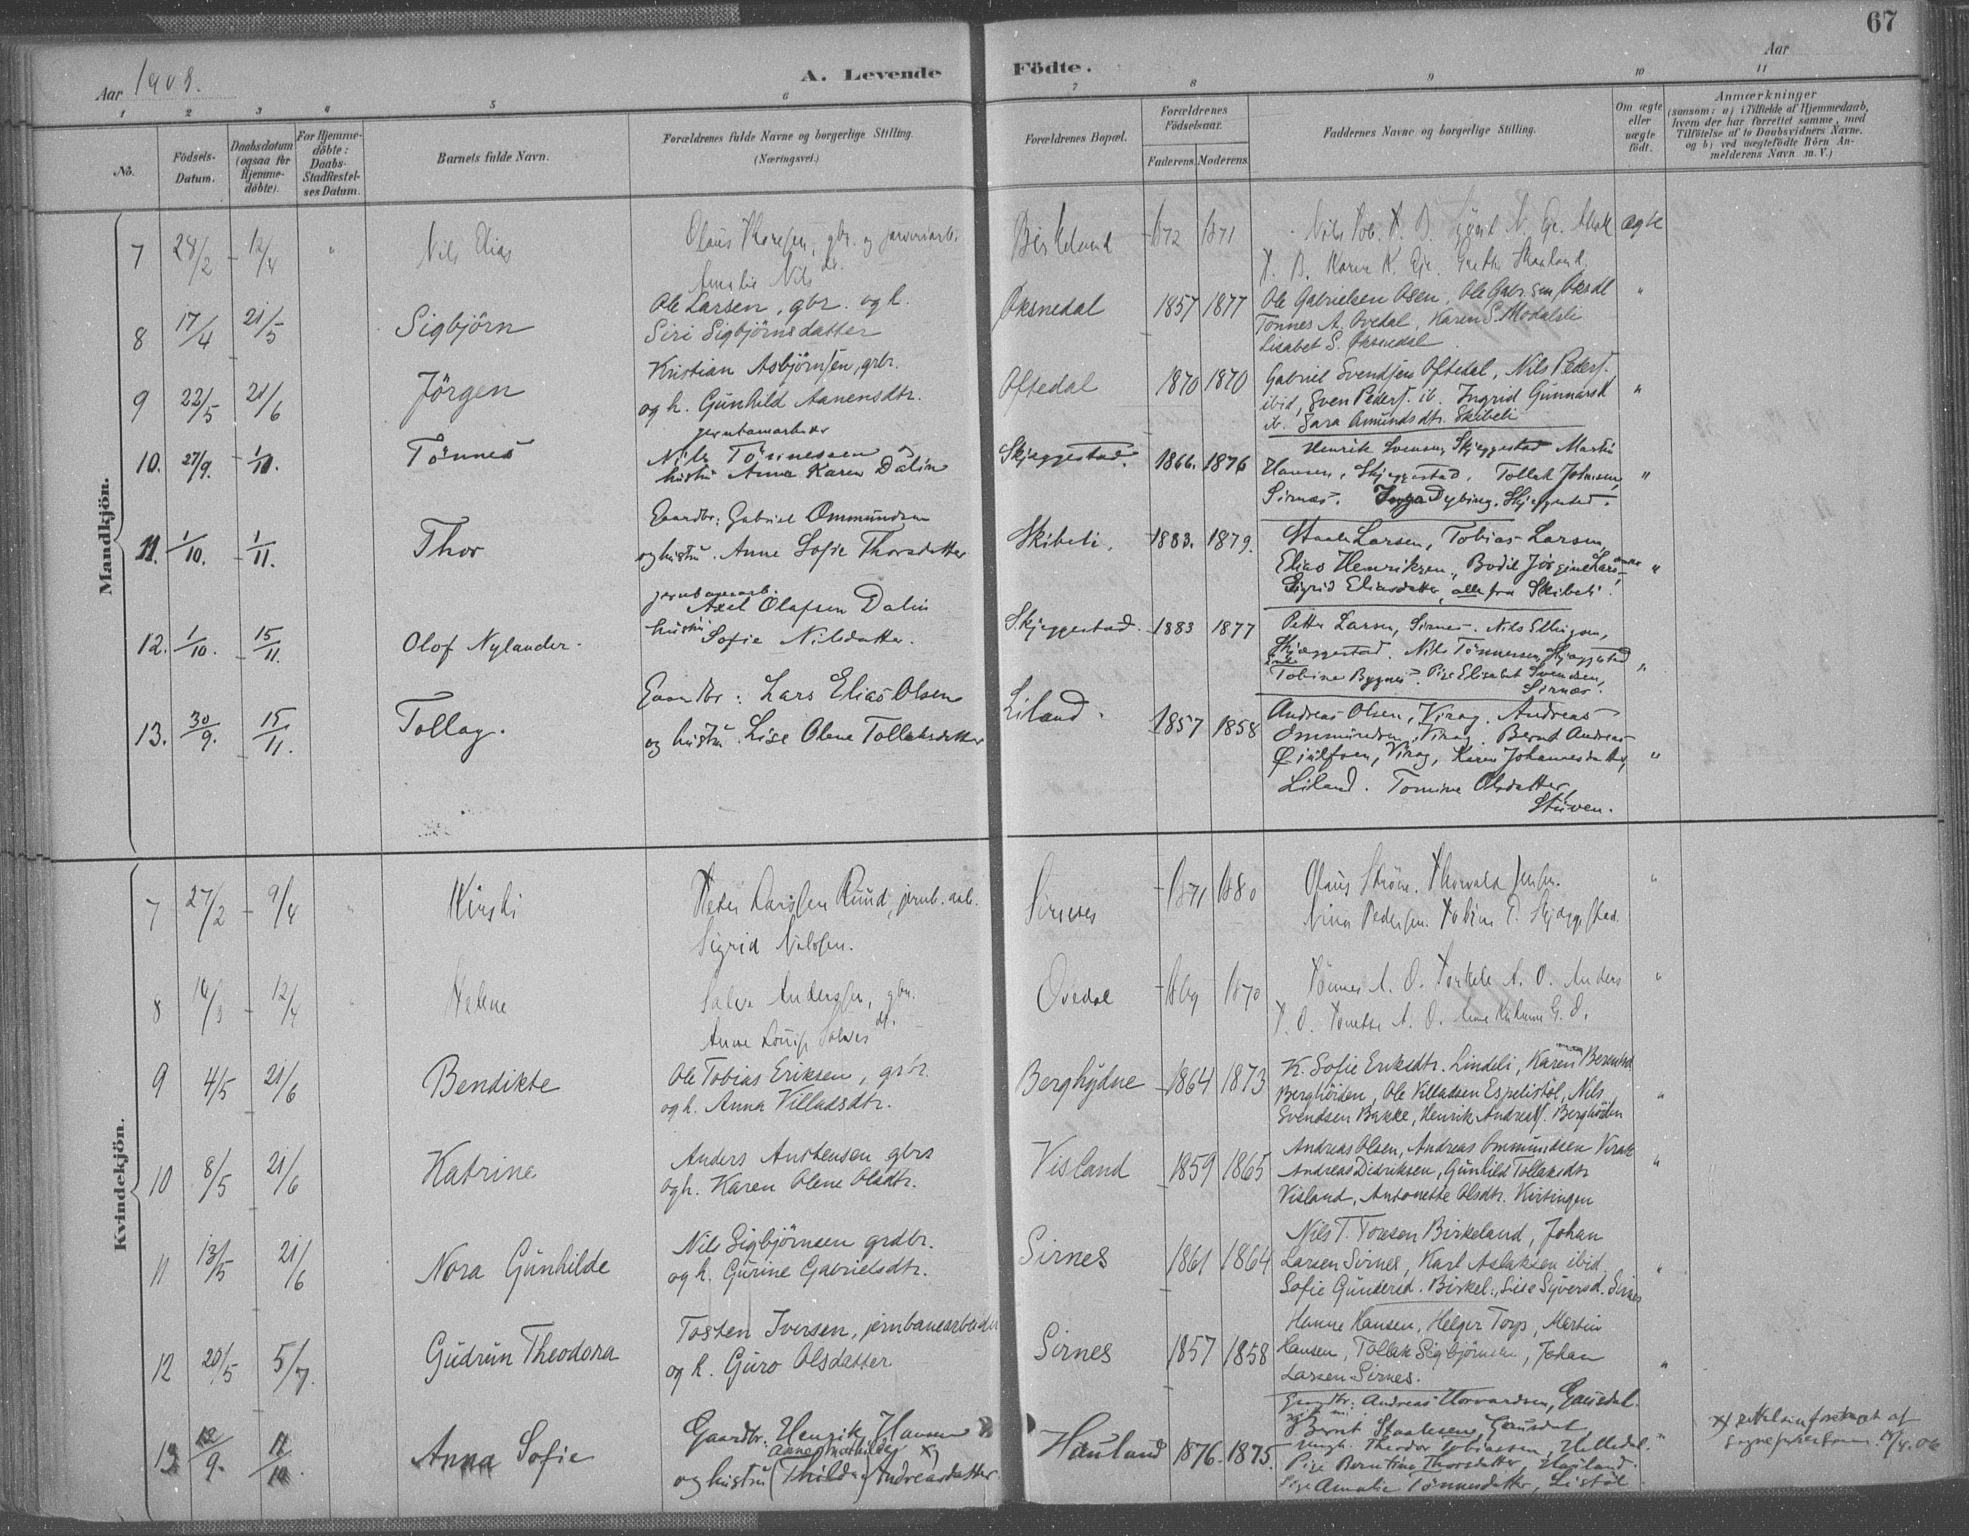 67
Aar 1903.
A. Levende Födte.
Aar
1 2 3 4 5 6 7 8 9 10 11
No.
Födsels-Datum.
Daabsdatum (ogsaa for Hjemme-döbte).
For Hjemme-döbte: Daabs-Stadfæstel-ses Datum.
Barnets fulde Navn.
Forældrenes fulde Navne og borgerlige Stilling. (Næringsvei.)
Forældrenes Bopæl.
Forældrenes Födselsaar.
Faderens. Moderens.
Faddernes Navne og borgerlige Stilling.
Om ægte eller uægte födt.
Anmærkninger
(saasom: a) i Tilfælde af Hjemmedaab,
hvem der har forrettet samme, med
Tilföielse af to Daabsvidners Navne.
og b) ved uægtefödte Börn An-
melderens Navn m. V.)
Mandkjön.
7 28/2 12/4 " Nils Elias
Birkeland 1872 1871 ægte
8 17/4 21/5 Sigbjörn
Ole Larsen, gbr. og h.
Siri Sigbjörnsdatter
Øksnedal 1857 1877
Ole Gabrielsen Osen,
Tönnes A. Ovedal, Karen S. Modalsli
Lisabet S. Øksnedal "
9 22/5 21/6 Jörgen
Kristian Asbjörnsen, grbr.
og h. Gunhild Aanensdtr.
Oftedal 1870 1870
Gabriel Svendsen Oftedal, Nils Peders.
ibid, Sven Peders. ib. Ingrid Gunnarsd
ib. Sara Amundsdtr. Skibeli "
10. 27/9. 1/11. Tönnes
jernbanearbeider
Nils Tönnessen
hustru Anna Karen Dalin
Skjæggestad. 1866. 1876
Henrik Svensen, Skjæggestad Martin
Hansen, Skjæggestad. Tollak Johnsen,
Sirnæs. Inga Dybing, Skjæggestad. "
11. 1/10. 1/11. Thor
Gaardbr: Gabriel Ommundsen
og hustru. Anne Sofie Thorsdatter
Skibeli. 1883. 1879.
Staale Larsen, Tobias Larsen,
Elias Henriksen, Bodil Jörgine
Sigrid Eliasdatter, alle fra Skibeli. "
12. 1/10. 15/11. Olof Nylander.
jernbanearb.
Axel Olafsen Dalin
hustru Sofie Nilsdatter.
Skjæggestad. 1883 1877
Petter Larsen, Sirnes. Nils Ellingsen,
Skjæggestad. Nils Tönnessen, Skjæggestad
Tobine Bygnes. Pige Elisabet Svendsen,
Sirnæs. "
13. 30/9. 15/11. Tollag.
Gaardbr: Lars Elias Olsen
og hustru. Lise Olene Tollaksdatter
Liland. 1857 1858
Andreas Olsen, Virag. Andreas
Ommundsen, Virag. Bernt Andreas
Virag, Karen Johannesdatter,
Liland. Tomine Olsdatter,
Stuven. "
Kvindekjön.
7 27/2 9/4 " Kirsti
Peder Larssen Ruud, jernb. arb.
Sigrid Nielssen.
Sirnes 1871 1880
Olaus Ström. Thorvald Jensen.
Nina Pedersen. Tobine T. Skjæggestad. "
8 12/4 " Helene
Salve Anderssen, gbr.
Anne Louise Salves dt.
Ovedal 1869 1870
Tönnes A. O. Torkele A. O. Anders
T. O. Tonette A. O. "
9 4/5 21/6 Bendikte
Ole Tobias Eriksen, grbr.
og h. Anna Villadsdtr.
Berghydne 1864 1873
K. Sofie Eriksdtr. Lindeli, Karen
Berghöiden, Ole Villadsen Espelistöl, Nils
Svendsen Bakke, Henrik Andreas. Berghöiden "
10 8/5 21/6 Katrine
Anders Austensen gbr
og h. Karen Olene Olsdtr.
Visland 1859 1865
Andreas Olsen, Andreas Ommundsen Virak
Andreas Didriksen, Gunhild Tollaksdtr
Visland, Antonette Olsdtr. Kvitingen "
11 13/5 21/6 Nora Gunhilde
Nils Sigbjörnsen grdbr.
og h. Gurine Gabrielsdtr.
Sirnes 1861 1864
Nils T. Toresen Birkeland, Johan
Larsen Sirnes, Karl Aslaksen ibid
Sofie Gundersd. Birkel., Lise Syversd. Sirnes "
12 20/5 5/7. Gudrun Theodora
Tosten Iversen, jernbanearbeider
og h. Guro Olsdatter
Sirnes 1857 1858
Hanne Hansen, Helger Torp, Martin
Hansen, Tollak Sigbjörnsen, Johan
Larsen Sirnes. "
13 12/9. 11/10. Anna Sofie
Gaardbr. Henrik Hansen
Anne Mathilde x)
og hustru (Thilda) Andreasdatter
Hauland 1876. 1875.
Gaardbr: Andreas Hovardsen, Gausdal.
Bernt Staalesen, Gausdal
ungk. Theodor Tobiassen, Hilledal.
Pige Berntine Thorsdatter, Hauland.
Pige Amalie Tönnesdatter, Listöl "
x) Rettelsen foretaget af
Sognepresten